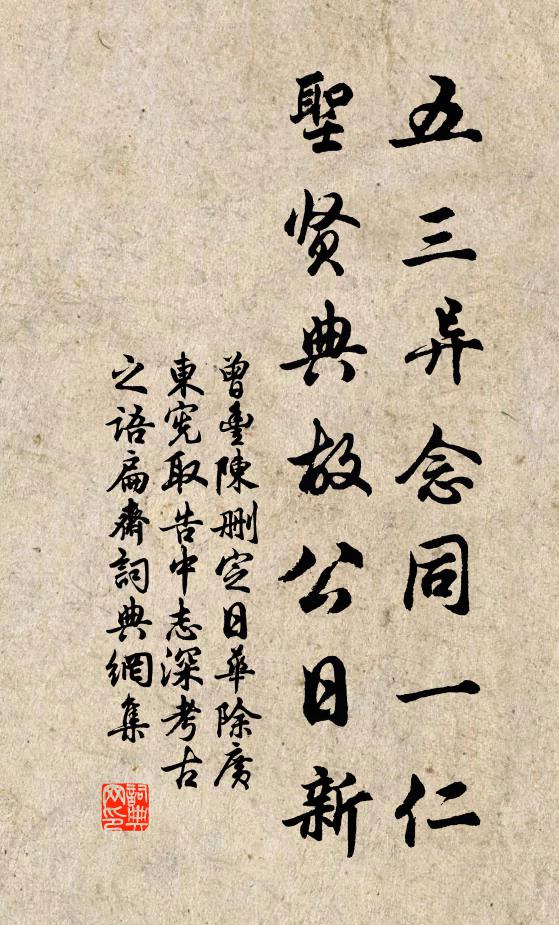 五三异念同一仁
聖贤典故公日新
曾豊陳删定日華除廣
東宪取告中志深考古
之語扁齋詞典網集
詞典
网印